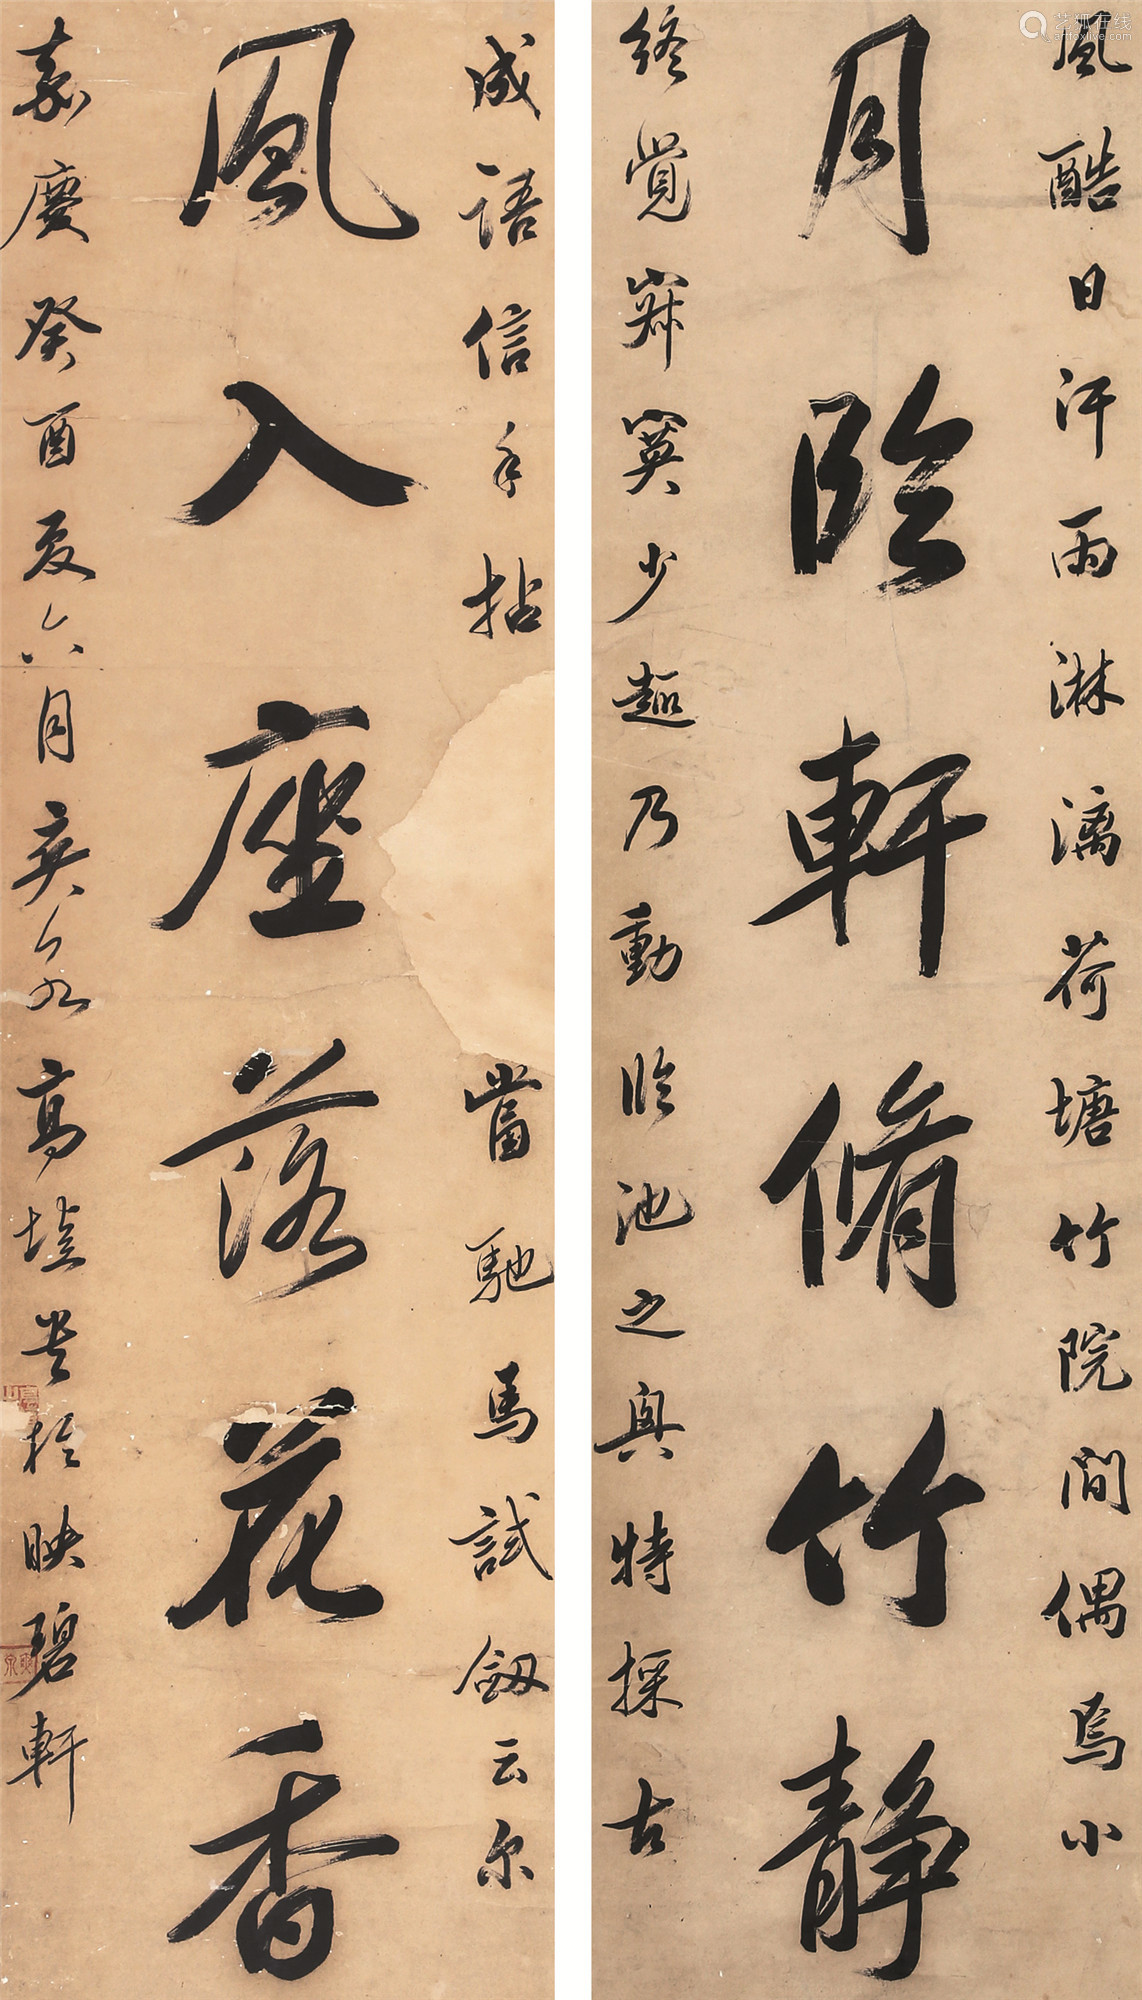 风酷日汗雨淋漓荷塘竹院間偶焉小
月临軒脩竹静
终覚寂寞少趣乃動临池之興特採古
成語信手拈
當馳馬試劔云尔
風入座落花香
嘉慶癸酉夏六月英泉高垲書於映碧軒
艺狐在线
artfoxlive.com